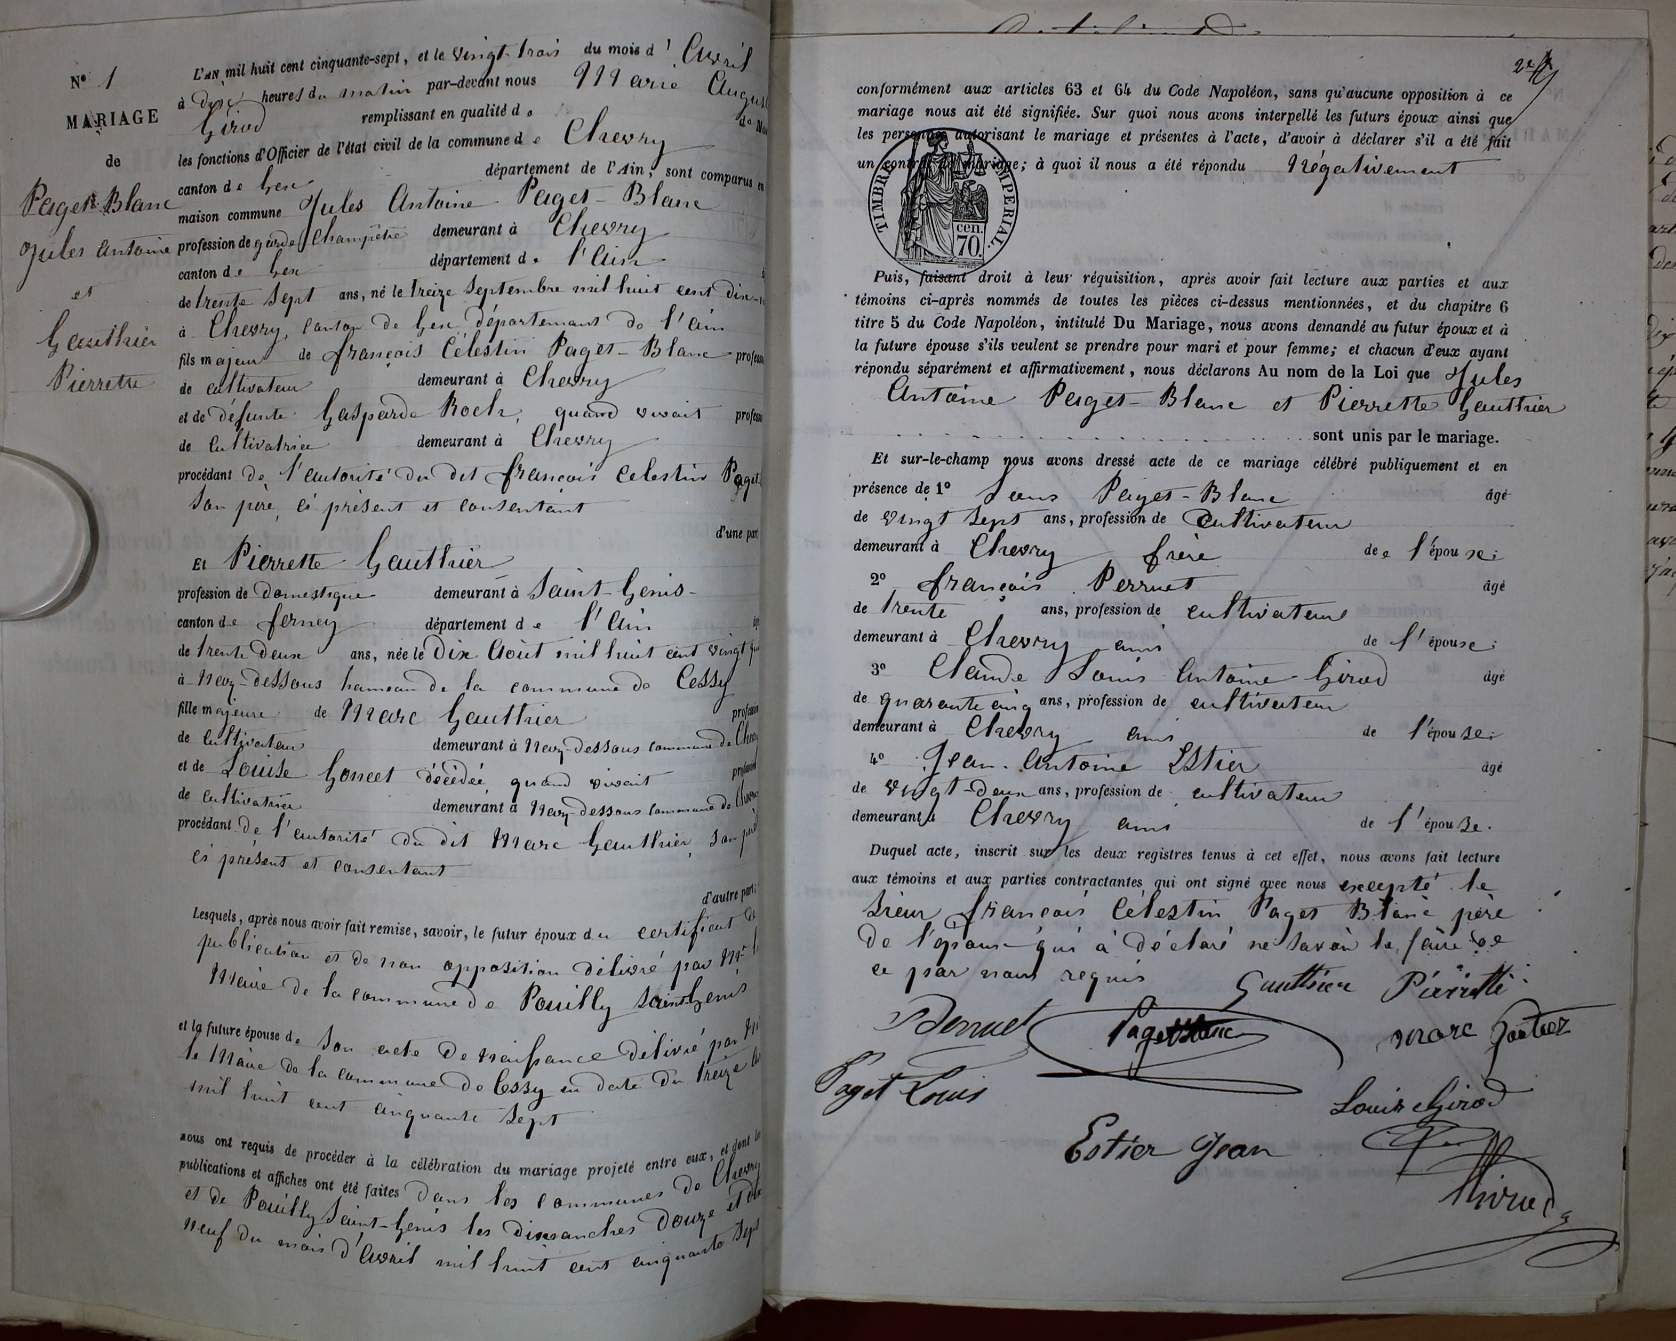 N° 1
MARIAGE
de
Paget-Blanc
Jules Antoine
et
Gauthier
Pierrette
L'AN mil huit cent cinquante-sept, et le vingt trois du mois d' Avril
à dix heures du matin par-devant nous Marie August
Girod remplissant en qualité de
les fonctions d'Officier de l'état civil de la commune de Chevry
canton de Gex département de l'Ain, sont comparus en
maison commune Jules Antoine Paget-Blanc
profession de garde Champêtre demeurant à Chevry
canton de Gex département de l'Ain
de trente sept ans, né le treize Septembre mil huit cent dix
à Chevry, canton de Gex département de l'ain
fils majeur de françois Célestin Paget-Blanc profession
de cultivateur demeurant à Chevry
et de défunte Gasparde Roch, quand vivait profession
de Cultivatrice demeurant à Chevry
procédant de l'autorité du dit françois Celestin Paget
son père, ci présent et consentant
d'une part
Et Pierrette Gauthier
profession de Domestique demeurant à Saint-Genis
canton de ferney département de l'Ain
de trente deux ans, née le Dix Août mil huit cent vingt
à Naz-dessous hameau de la commune de Cessy
fille majeure de Marc Gauthier profession
de cultivateur demeurant à Naz-dessous commune de Chevry
et de Louise Goncet décédée, quand vivait profession
de cultivatrice demeurant à Naz-dessous commune de Chevry
procédant de l'autorité du dit Marc Gauthier, son père
ci présent et consentant
d'autre part;
Lesquels, après nous avoir fait remise, savoir, le futur époux du certificat de
publication et de non opposition délivré par Mr le
Maire de la commune de Pouilly Saint Genis
et la future épouse de son acte de naissance délivré par Mr
le Maire de la commune de Cessy en date du treize
mil huit cent cinquante sept
nous ont requis de procéder à la célébration du mariage projeté entre eux, et dont les
publications et affiches ont été faites dans les communes de Chevry
et de Pouilly Saint-Genis les dimanches douze et dix
neuf du mois d'Avril mil huit cent cinquante sept
conformément aux articles 63 et 64 du Code Napoléon, sans qu'aucune opposition à ce
mariage nous ait été signifiée. Sur quoi nous avons interpellé les futurs époux ainsi que
les personnes autorisant le mariage et présentes à l'acte, d'avoir à déclarer s'il a été fait
un contrat de mariage; à quoi il nous a été répondu Négativement
TIMBRE IMPERIAL.
70. cen.
Puis, faisant droit à leur réquisition, après avoir fait lecture aux parties et aux
témoins ci-après nommés de toutes les pièces ci-dessus mentionnées, et du chapitre 6
titre 5 du Code Napoléon, intitulé Du Mariage, nous avons demandé au futur époux et à
la future épouse s'ils veulent se prendre pour mari et pour femme; et chacun d'eux ayant
répondu séparément et affirmativement, nous déclarons Au nom de la Loi que Jules
Antoine Paget-Blanc et Pierrette Gauthier
sont unis par le mariage.
Et sur-le-champ nous avons dressé acte de ce mariage célébré publiquement et en
présence de 1° Louis Paget-Blanc âgé
de vingt sept ans, profession de Cultivateur
demeurant à Chevry frère de l'épouse;
2° françois Perruet âgé
de trente ans, profession de cultivateur
demeurant à Chevry ami de l'épouse;
3° Claude Louis Antoine Girod âgé
de quarante cinq ans, profession de cultivateur
demeurant à Chevry ami de l'épouse;
4° Jean-Antoine Estier âgé
de vingt-deux ans, profession de cultivateur
demeurant à Chevry ami de l'épouse.
Duquel acte, inscrit sur les deux registres tenus à cet effet, nous avons fait lecture
aux témoins et aux parties contractantes qui ont signé avec nous excepté le
sieur françois Célestin Paget Blanc père
de l'époux qui a déclaré ne savoir le faire de
ce par nous requis
Gauthier Pierrette
Perruet Pagetblanc marc Gotier
Paget Louis
Louis Girod
Estier Jean
Girod